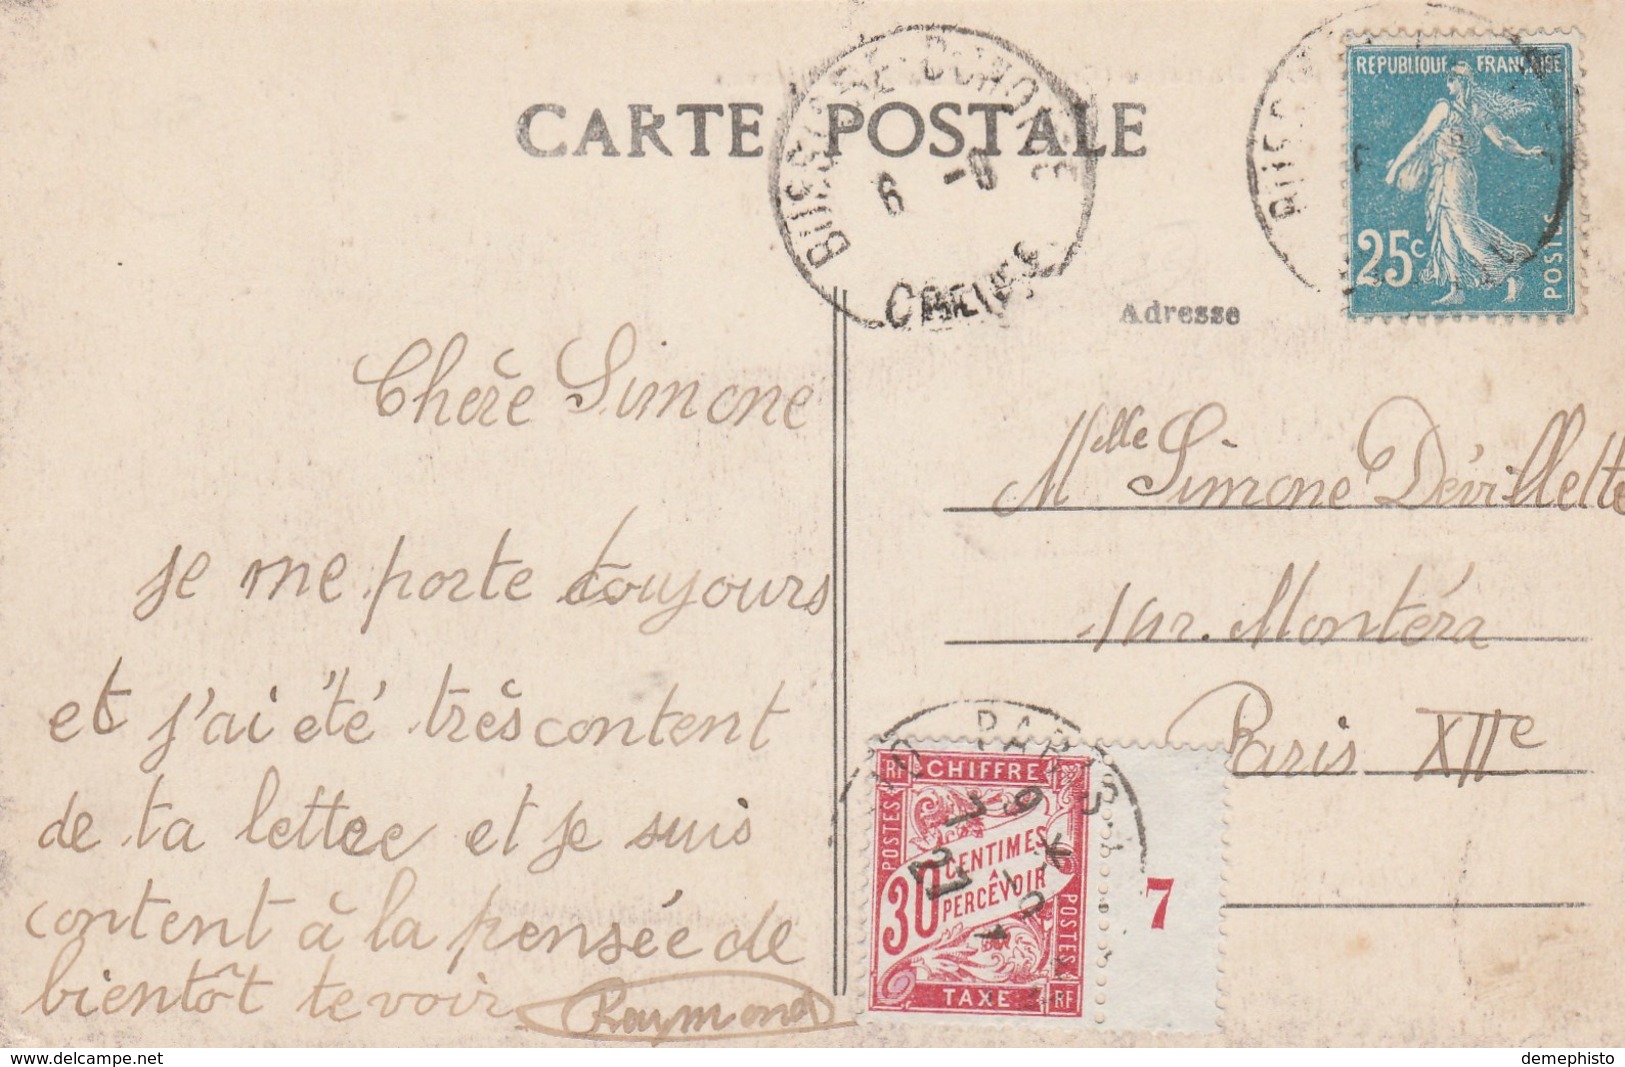 CARTE POSTALE
6 -8
CREUSE
REPUBLIQUE FRANÇAISE
25c
POSTES
Adresse
Chère Simone
je me porte toujours
et j'ai été très content
de ta lettre et je suis
content à la pensée de
bientôt te voir
Raymond
Mlle Simone Dévillette
Paris XIIe
PARIS
RF CHIFFRE
POSTES
30 CENTIMES
À
PERCEVOIR
POSTES
TAXE RF
7
www.delcampe.net
demephisto